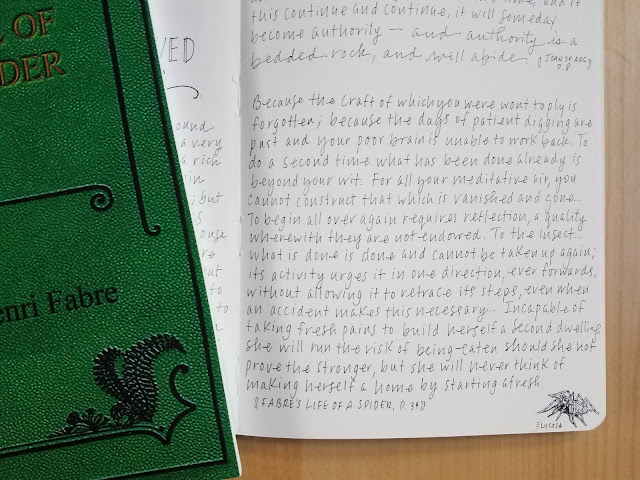 R OF
DER
enri Fabre
VED
ound
a very
a rich
but
ouse
to
this continue and continue, it will someday
become authority – and authority is a
bedded rock, and will abide. "JOAN OF ARC"
Because the craft of which you were wont to ply is
forgotten; because the days of patient digging are
past and your poor brain is unable to work back. To
do a second time what has been done already is
beyond your wit. For all your meditative air, you
cannot construct that which is vanished and gone...
To begin all over again requires reflection, a quality
wherewith they are not endowed. To the insect...
what is done is done and cannot be taken up again;
its activity urges it in one direction, ever forwards,
without allowing it to retrace its steps, even when
an accident makes this necessary... Incapable of
taking fresh pains to build herself a second dwelling
she will run the risk of being eaten should she not
prove the stronger, but she will never think of
making herself a home by starting afresh
"FABRE'S LIFE OF A SPIDER, P. 34"
LYCOSA